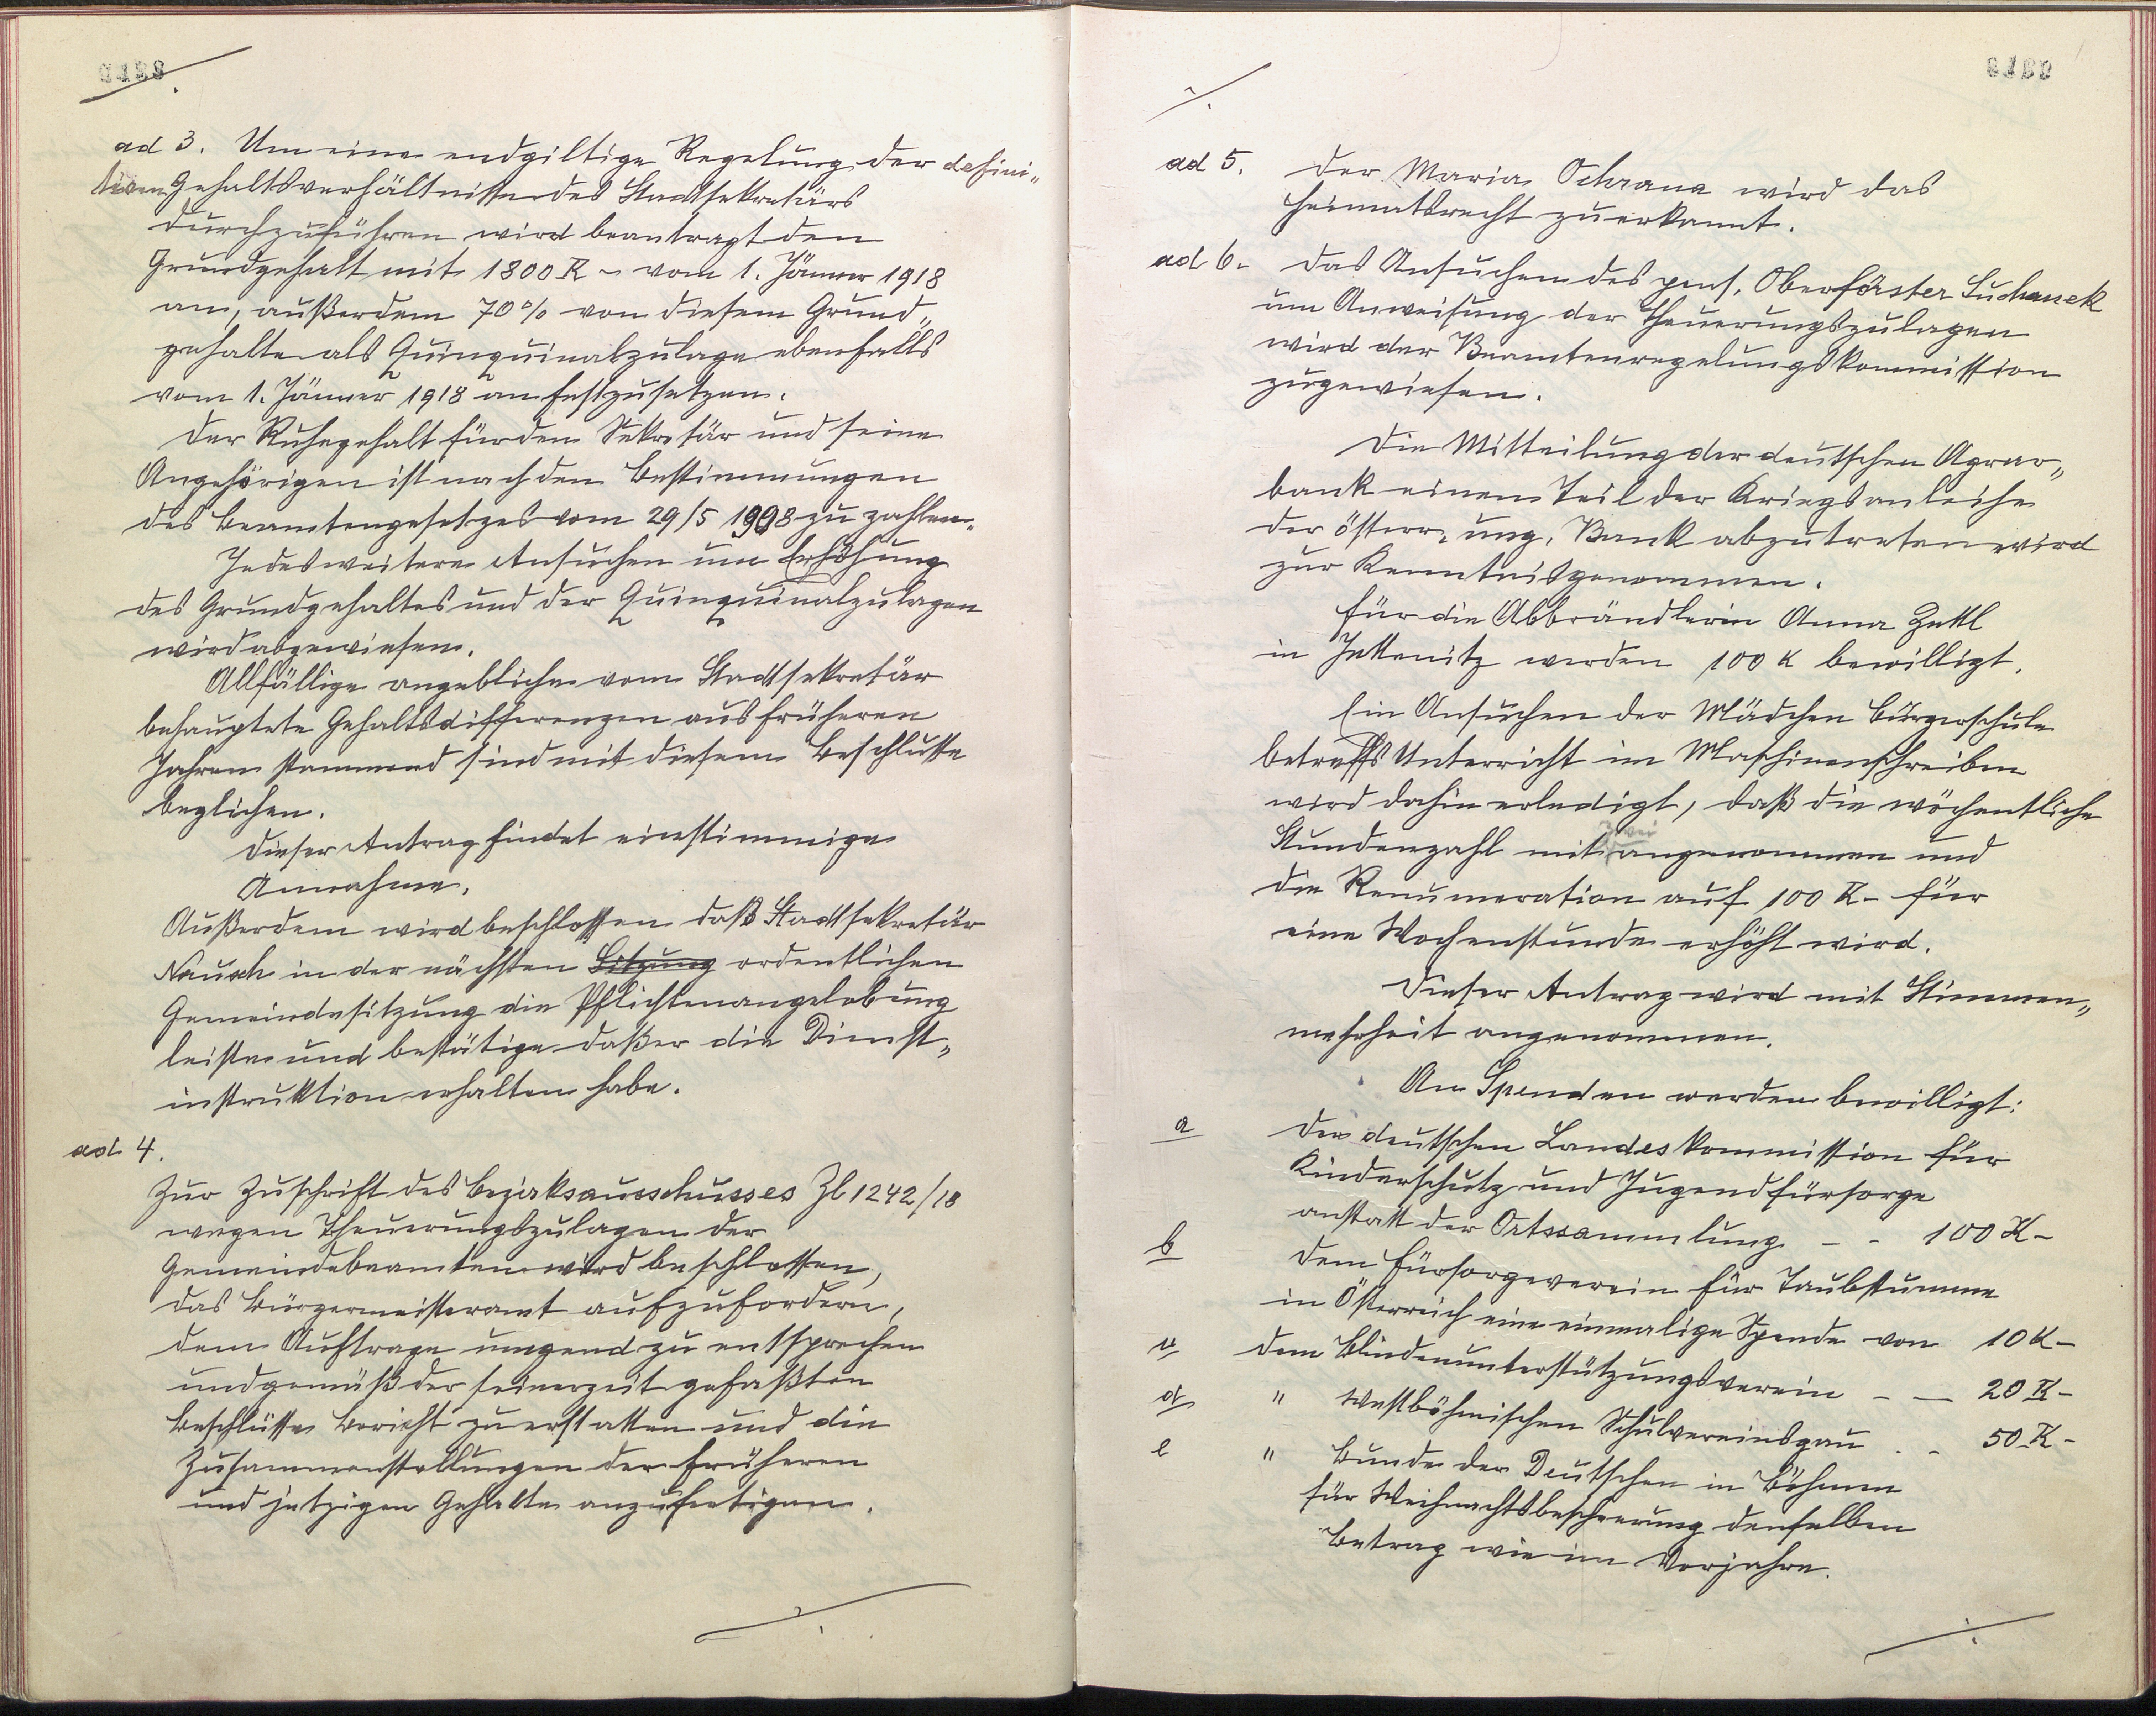 ad 3. Um eine endgiltige Regelung der defini„
tiven Gehaltsverhältnisse des Stadtsekretärs
durchzuführen wird beantragt den
Grundgehalt mit 1800 K – vom 1. Jänner 1918
an, außerdem 70% von diesem Grund„
gehalte als Quinquinalzulage ebenfalls
vom 1. Jänner 1918 an festzusetzen.
Der Ruhegehalt für den Sekretär und seine
Angehörigen ist nach den Bestimmungen
des Beamtengesetzes vom 29/5 1908 zu zahlen.
Jedes weitere Ansuchen um Erhöhung
des Grundgehaltes und der Quinquinalzulagen
wird abgewiesen.
Allfällige angebliche vom Stadtsekretär
behauptete Gehaltsdifferenzen aus früheren
Jahren stammend sind mit diesem Beschlusse
beglichen.
Dieser Antrag findet einstimmige
Annahme.
Außerdem wird beschlossen daß Stadtsekretär
Nausch in der nächsten Sitzung ordentlichen
Gemeindesitzung die Pflichtenangelobung
leiste und bestätige daß er die Dienst„
instruktion erhalten habe.
ad 4.
Zur Zuschrift des Bezirksausschusses Zl 1242/18
wegen Theuerungszulagen der
Gemeindebeamten wird beschlossen,
das Bürgermeisteramt aufzufordern,
dem Auftrage umgend zu entsprechen
und gemäß der seinerzeit gefaßten
Beschlüsse Bericht zu erstatten und die
Zusammenstellungen der früheren
und jetzigen Gehalte anzufertigen.
./.
./.
ad 5. Der Maria Ochrana wird das
Heimatsrecht zuerkannt.
ad 6. Das Ansuchen des pens. Oberförster Suchanek
um Anweisung der Theuerungszulagen
wird der Beamtenregelungskommission
zugewiesen.
Die Mitteilung der deutschen Agrar„
bank einen Teil der Kriegsanleihe
der österr. ung. Bank abzutreten wird
zur Kenntnis genommen.
Für die Abbrändlerin Anna Zettl
in Jettenitz werden 100 K bewilligt.
Ein Ansuchen der Mädchen Bürgerschule
betreffs Unterricht im Maschinenschreiben
wird dahin erledigt, daß die wöchentliche
Stundenzahl mit zwei angenommen und
die Renumeration auf 100 K– für
eine Wochenstunde erhöht wird.
Dieser Antrag wird mit Stimmen„
mehrheit angenommen.
An Spenden werden bewilligt:
a der deutschen Landeskommission für
Kinderschutz und Jugendfürsorge
anstatt der Ortssammlung – – 100 K–
b dem Fürsorgeverein für Taubstumme
in Österreich eine einmalige Spende von 10 K–
c dem Blindenunterstützungsverein – – 20 K–
d " Westböhmischen Schulvereinsgau . – 50 K–
e " Bunde der Deutschen in Böhmen
für Weihnachtsbescherung denselben
Betrag wie im Vorjahre.
./.